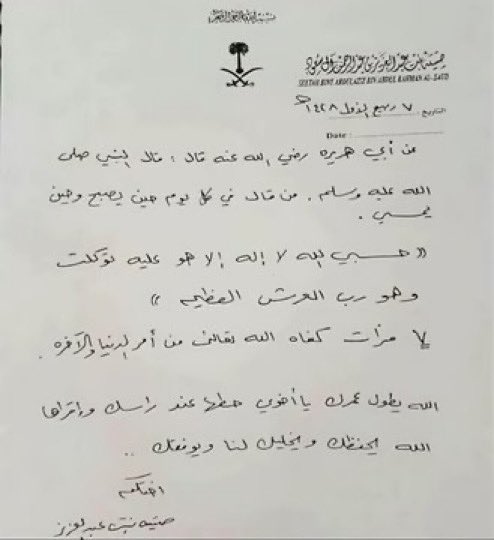 بنت عبد العزيز بن عبد الرحمن آل سعود
BINT ABDULAZIZ BIN ABDUL RAHMAN AL-SAUD
التاريخ: ٧ ربيع الأول ١٤٢٨هـ
Date :
عن أبي هريره رضي الله عنه قال : قال النبي صلى
الله عليه وسلم . من قال في كل يوم حين يصبح وحين
يمسي .
(( حسبي الله لا إله إلا هو عليه توكلت
وهو رب العرش العظيم ))
٧ مرات كفاه الله تعالى من أمر الدنيا والآخره .
الله يطول عمرك يا أخوي حطها عند راسك وإقراها
الله يحفظك ويخليك لنا ويوفقك ..
اختكم
بنت عبدالعزيز